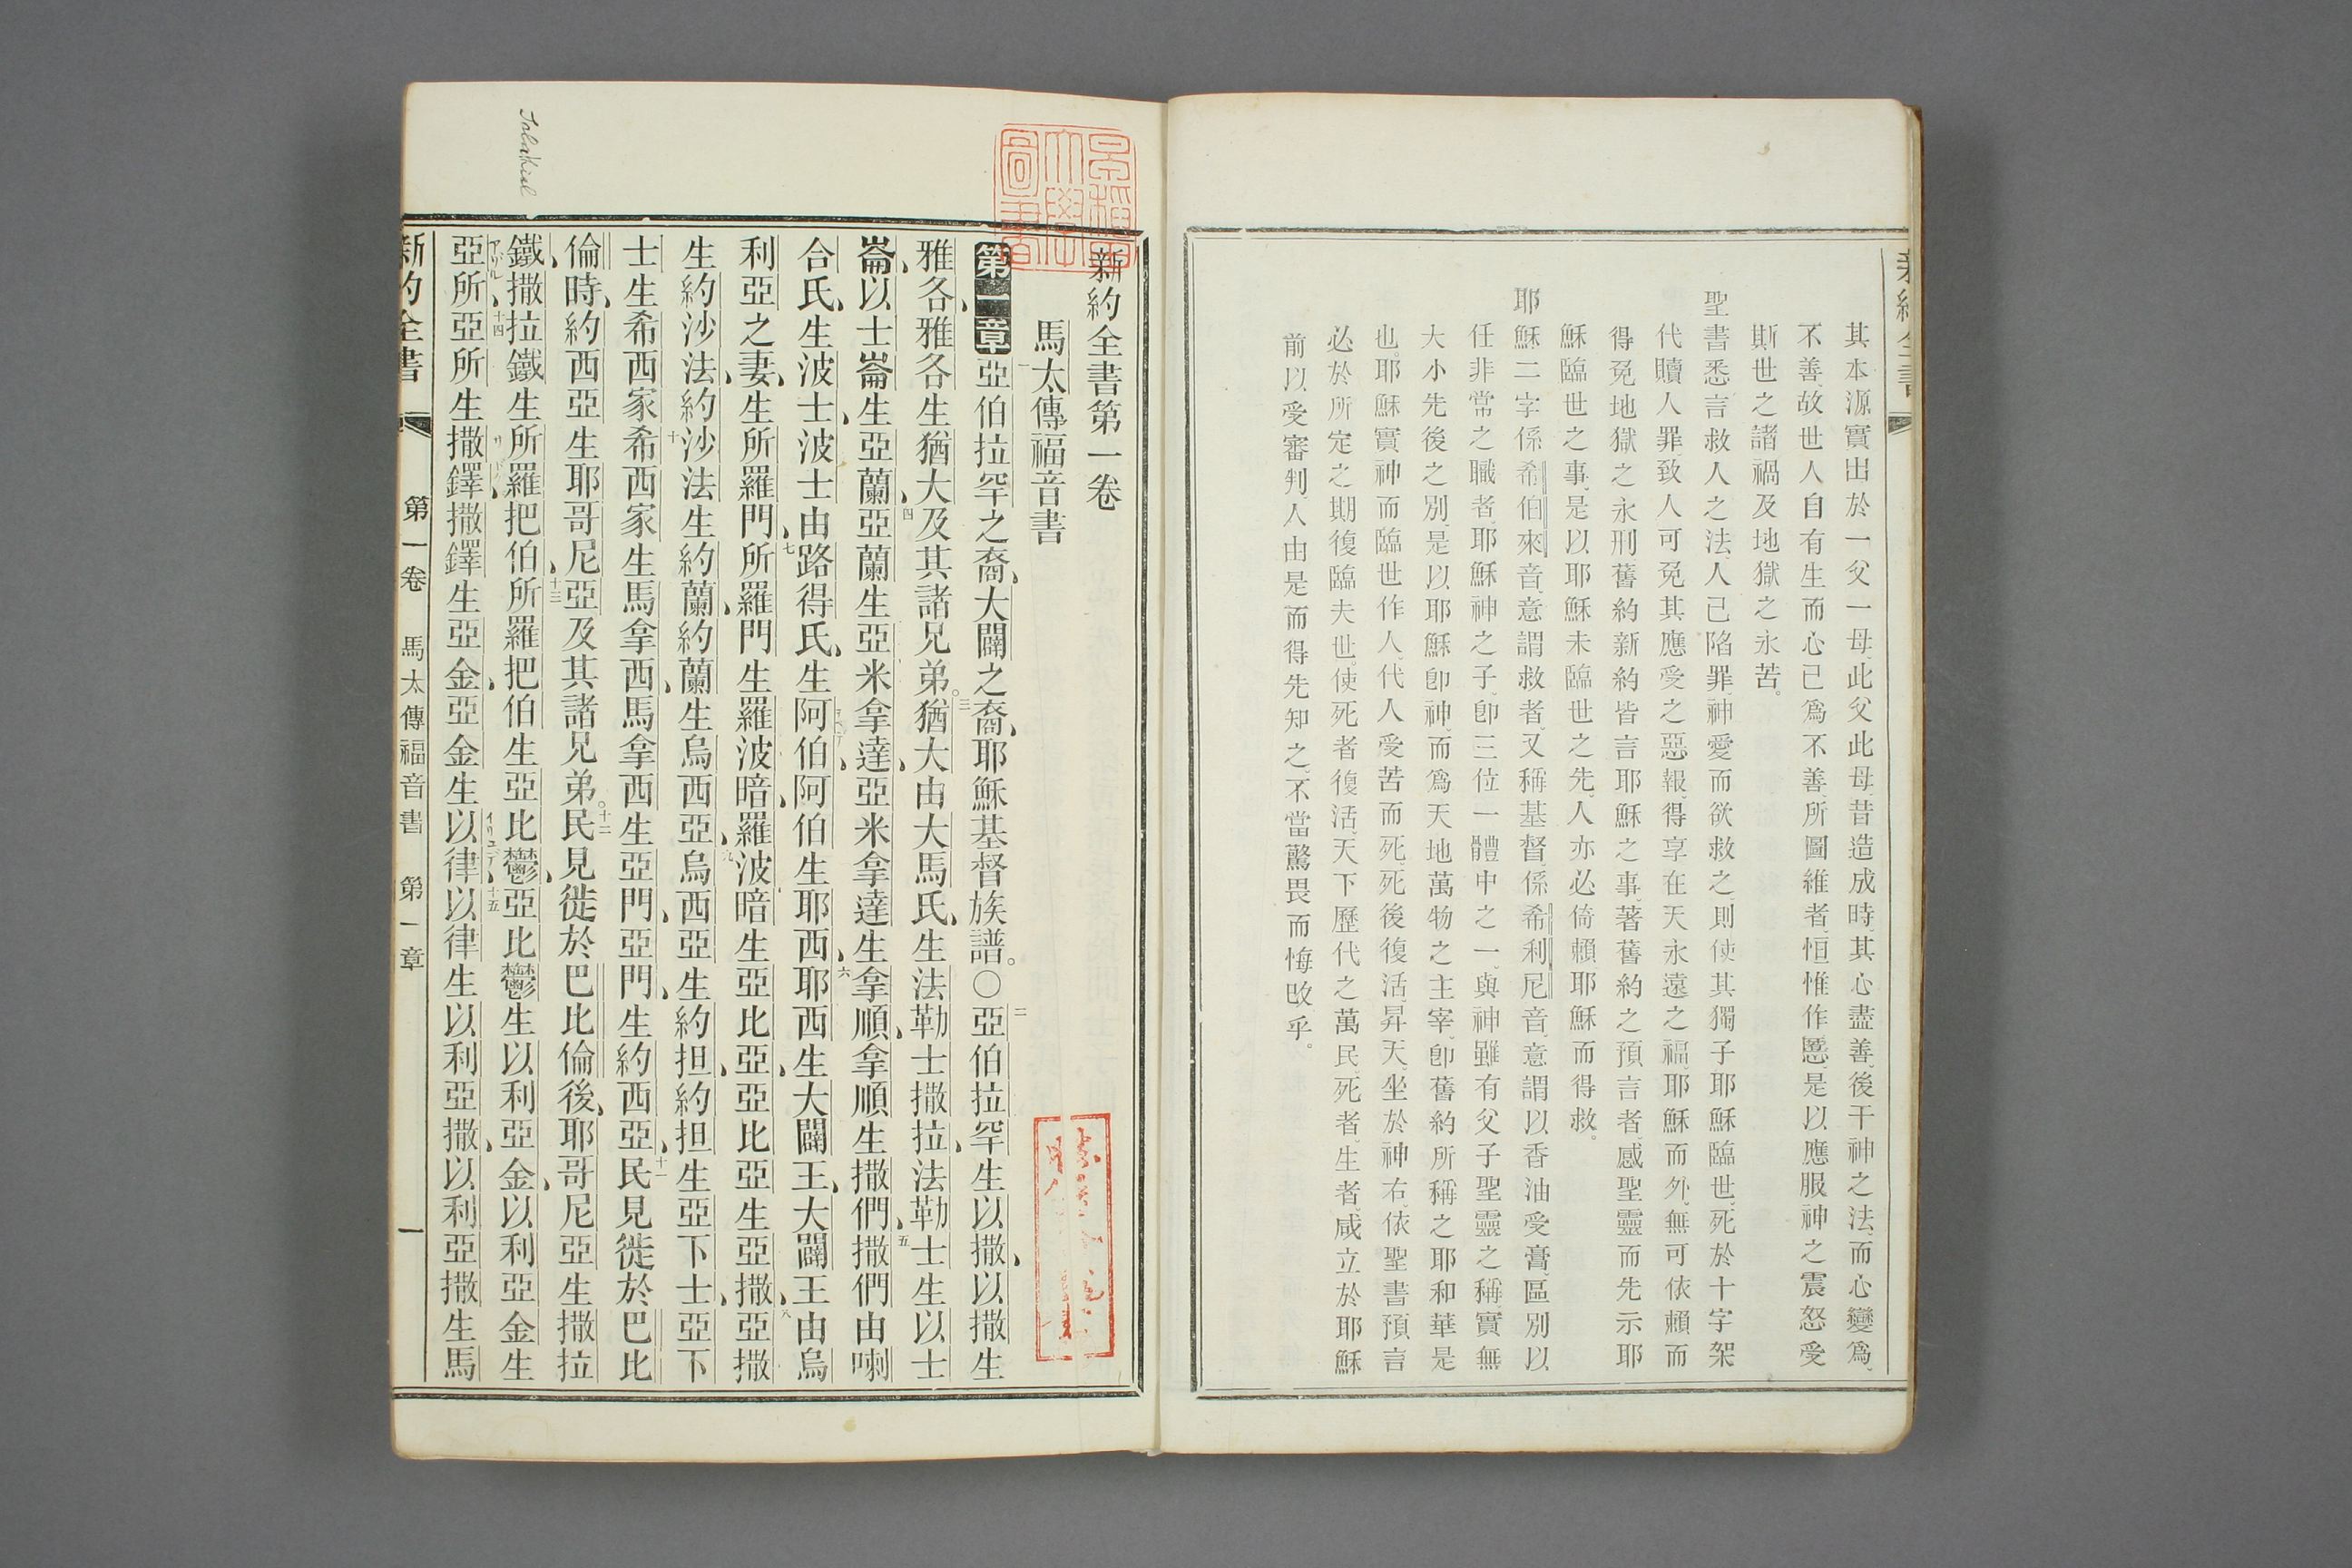 新約全書
其本源實出於一父一母、此父此母、昔造成時、其心盡善、後干神之法、而心變爲、
不善、故世人自有生而心已爲不善、所圖維者、恒惟作慝、是以應服神之震怒、受
斯世之諸禍及地獄之永苦。
聖書悉言救人之法、人已陷罪、神愛而欲救之、則使其獨子耶穌臨世、死於十字架
代贖人罪、致人可免其應受之惡報、得享在天永遠之福、耶穌而外、無可依賴而
得免地獄之永刑、舊約新約皆言耶穌之事、著舊約之預言者、感聖靈而先示耶
穌臨世之事、是以耶穌未臨世之先、人亦必倚賴耶穌而得救。
耶穌二字係希伯來音、意謂救者、又稱基督、係希利尼音、意謂以香油受膏、區別以
任非常之職者、耶穌神之子、卽三位一體中之一、與神雖有父子聖靈之稱、實無
大小先後之別、是以耶穌卽神、而爲天地萬物之主宰、卽舊約所稱之耶和華是
也、耶穌實神而臨世作人、代人受苦而死、死後復活、昇天、坐於神右、依聖書預言
必於所定之期復臨夫世、使死者復活、天下歷代之萬民、死者、生者、咸立於耶穌
前以受審判、人由是而得先知之、不當驚畏而悔改乎。
新約全書第一卷
馬太傳福音書
第一章一亞伯拉罕之裔、大闢之裔、耶穌基督族譜。〇二亞伯拉罕生以撒、以撒生
雅各、雅各生猶大及其諸兄弟。三猶大由大馬氏、生法勒士撒拉、法勒士生以士
崙、以士崙生亞蘭、四亞蘭生亞米拿達、亞米拿達生拿順、拿順生撒們、五撒們由喇
合氏、生波士、波士由路得氏、生阿伯、阿伯生耶西、六耶西生大闢王、大闢王由烏
利亞之妻、生所羅門、七所羅門生羅波暗、羅波暗生亞比亞、亞比亞生亞撒、八亞撒
生約沙法、約沙法生約蘭、約蘭生烏西亞、九烏西亞生約担、約担生亞下士、亞下
士生希西家、十希西家生馬拿西、馬拿西生亞門、亞門、生約西亞、十一民見徙於巴比
倫時、約西亞生耶哥尼亞及其諸兄弟。十二民見徙於巴比倫後、耶哥尼亞生撒拉
鐵、撒拉鐵生所羅把伯、十三所羅把伯生亞比鬱、亞比鬱生以利亞金、以利亞金生
亞所、十四亞所生撒鐸、撒鐸生亞金、亞金生以律、十五以律生以利亞撒、以利亞撒生馬
新約全書 第一卷 馬太傳福音書 第一章 一